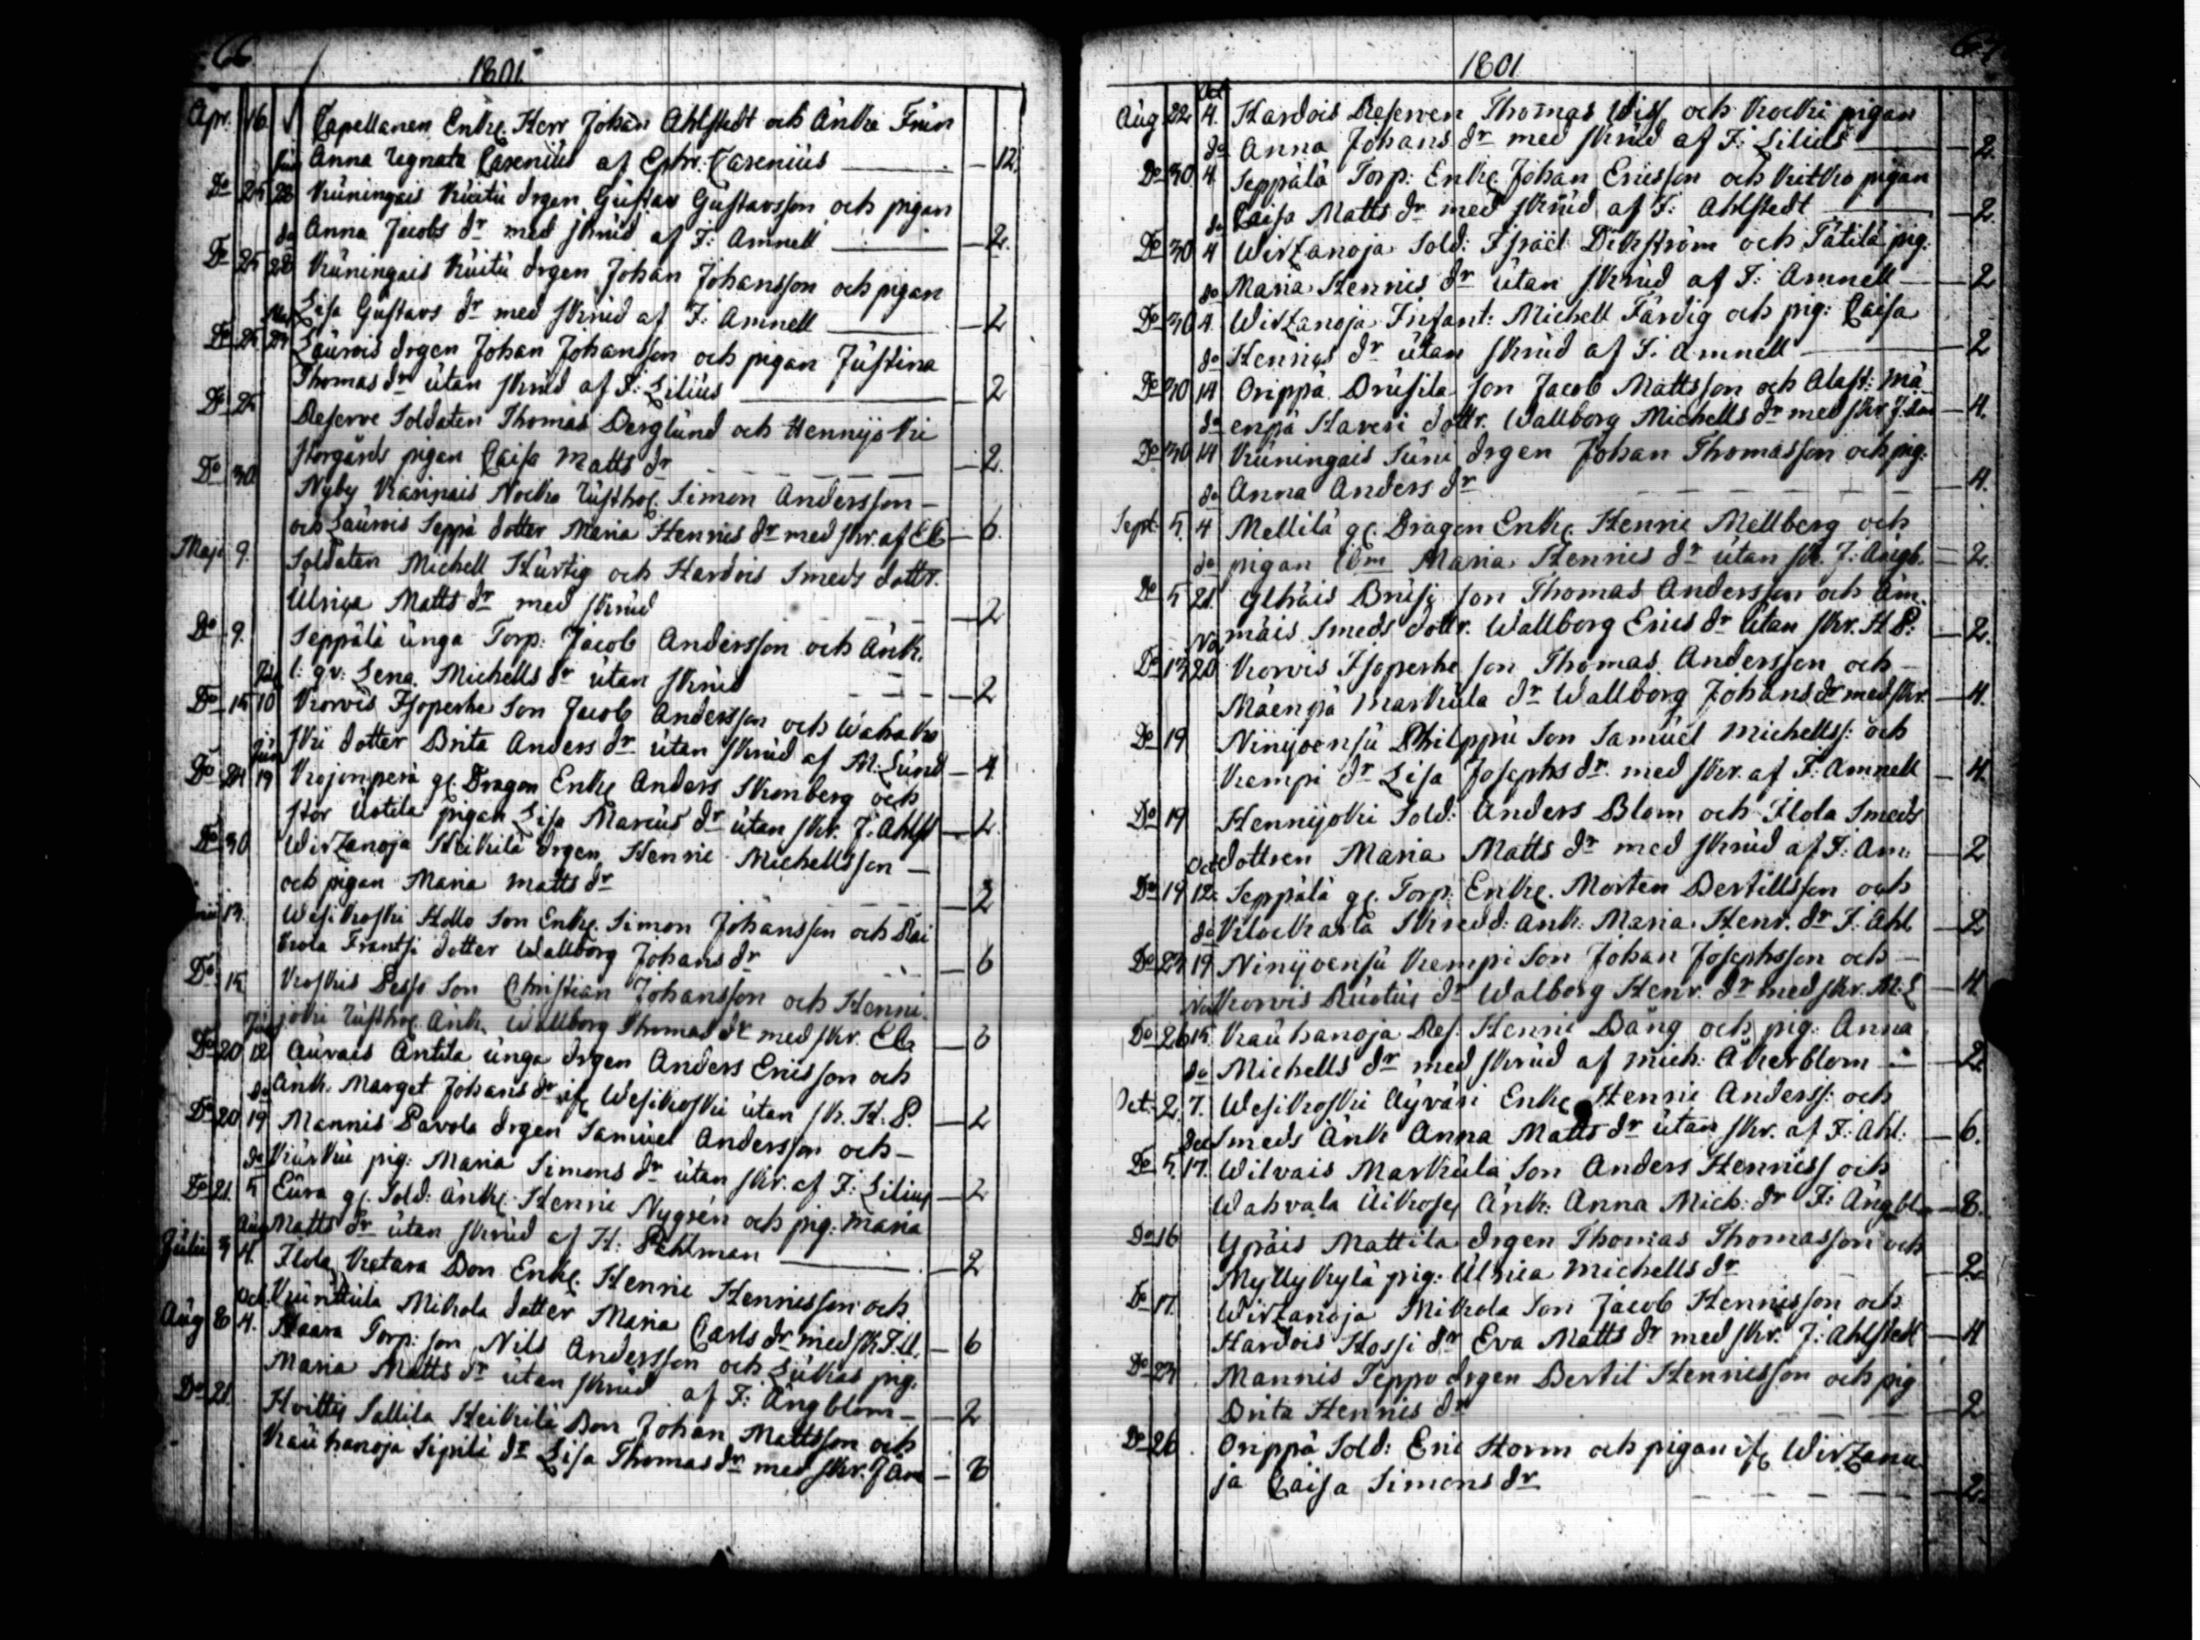 66.
1801.
Apr. 16. Capellanen Enkl. Herr Johan Ahlstedt och Änka Frun
Anna Regnata Carenius af Ephr. Carenius — 12.
Do 25 28 Küningais Küitü drgen Gustav Gustavsson och pigan
do Anna Jacobs dr med skrud af F: Amnell — 2.
Do 25 28 Küningais Küitü drgen Johan Johansson och pigan
Lisa Gustavs dr med skrud af F: Amnell — 2
Do 25 Laurois drgen Johan Johansson och pigan Justina
Thomas dr utan skrud af F: Lilius — 2
Do 25 Reserve Soldaten Thomas Berglund och Hennijoki
storgårds pigan Caisa Matts dr — 2.
Do 30 Nyby Karinais Nocka rusthol. Simon Andersson
och Laurois Seppä dotter Maria Henriks dr med skr. af — 6.
Maji 9. Soldaten Michell Hurtig och Hardois Smeds dottr.
Ulrica Matts dr med skrud — 2
Do 9. Seppälä unga Torp. Jacob Andersson och Änk.
l. qv. Lena Michells dr utan skrud — 2
Do 15 10 Korvois Isoperhe Son Jacob Andersson och Wahako
ski dotter Brita Anders dr utan skrud af M. Lund — 4
Do 24 19 Kojonperä gl. Dragon Enkl. Anders Skonberg och
stor Uotila pigan Lisa Marcus dr utan skr. F: Ahlst — 2.
Do 30 Wirzanoja Heikilä drgen Henric Michellsson
och pigan Maria Matts dr — 2
13. Wesikoski Hollo Son Enkl. Simon Johansson och Rai
kola Frantsi dotter Wallborg Johans dr — 6
Do 15 Koskis Pesso Son Christian Johansson och Henni
joki rusthol. Änk. Wallborg Thomas dr med skr. — 6
Do 20 12 Auvais Antila unga drgen Anders Ericsson och
do Änk. Marget Johans dr if. Wesikoski utan sk. H. P. — 2
Do 20 19 Mannis Pavola drgen Samuel Andersson och
do Kürkü pig: Maria Simons dr utan skr. af F: Lilius — 2
Do 21. 5 Eura gl. Sold: änkl. Henric Nygrén och pig: Maria
Aug Matts dr utan skrud af H: Pahlman — 2
Julii 3 4. Ilola Ketara Bon Enkl. Henric Henricsson och
Oct. Küinttula Mikola dotter Maria Carls dr med sk F: — 6
Aug 8 4. Haara Torp: son Nils Andersson och Lukas pig.
Maria Matts dr utan skrud af F: Ängblom — 2
Do 21. Hvittis Sallila Heikilä Bon Johan Mattsson och
Kauhanoja Sipilä dr Lisa Thomas dr med skr. F Am — 8
67.
1801
Aug 22 4. Hardois Reserven Thomas Wiss och Kocki pigan
do Anna Johans dr med skrud af F: Lilius — 2.
Do 30. 4. Seppälä Torp: Enkl. Johan Ericsson och Kitko pigan
do Caisa Matts dr med skrud af F: Ahlstedt — 2.
Do 30 4 Wirzanoja Sold: Israel Dikström och Tätilä pig.
do Maria Henrics dr utan skrud af F: Amnell — 2
Do 30 4. Wirzanoja Infant: Michell Färdig och pig: Caisa
do Henrics dr utan skrud af F: Amnell — 2
Do 30 14 Orippä Drusila son Jacob Mattsson och Alast: Mä
do enpä Haveri dottr. Wallborg Michells dr med skr. — 4.
Do 30 14 Küningais Süni drgen Johan Thomasson och pig.
do Anna Anders dr — 4.
Sept. 5. 4 Mellilä gl. Dragon Enkl. Henric Mellberg och
do pigan ibm Maria Henrics dr utan sk. F: Ängb. — 2.
Do 5 21. Ylhäis Brusi son Thomas Andersson och Äm
mäis Smeds dottr. Wallborg Erics dr utan skr. H P. — 2.
Do 13 20 Korvois Isoperhe son Thomas Andersson och
Mäenpä Markula dr Wallborg Johans dr med skr. — 4.
Do 19 Niinijoensu Philppu Son Samuel Michellss: och
Kempi dr Lisa Josephs dr. med skr. af F: Amnell — 4.
Do 19 Hennijoki Sold: Anders Blom och Ilola Smeds
Oct dottren Maria Matts dr med skrud af F: Am: — 2
Do 19 12. Seppälä gl. Torp. Enkl. Morten Bertillsson och
do Kilockarla Skredd: Änk: Maria Henr. dr F: Ahl — 2
Do 27 19 Ninijoensu Kempi Son Johan Josephsson och
Nov Korvois Ruotu dr Walborg Henr. dr med skr. M. L — 4.
Do 26 15. Kauhanoja Res. Henric Bång och pig: Anna
do Michells dr med skrud af Mich: Åkerblom — 2
Oct. 2. 7. Wesikoski Äyväri Enkl. Henric Anderss: och
Dec Smeds Änk Anna Matts dr utan skr. af F: Ahl: — 6.
Do 5. 17. Wilvais Markula Son Anders Henricss och
Wahvala Änk: Anna Mich: dr F: Ängbl — 8.
Do 16 Ypäis Mattila drgen Thomas Thomasson och
Myllykylä pig: Ulrica Michells dr — 2.
Do 17. Wirzanoja Mikola Son Jacob Henricsson och
Hardois Hossi dr Eva Matts dr med skr. F: Ahlstedt — 4
Do 23 Mannis Teppo drgen Bertil Henricsson och pig
Brita Henrics dr — 2
Do 26 Orippä Sold: Eric Storm och pigan if. Wirzano
ja Caisa Simons dr — 2.